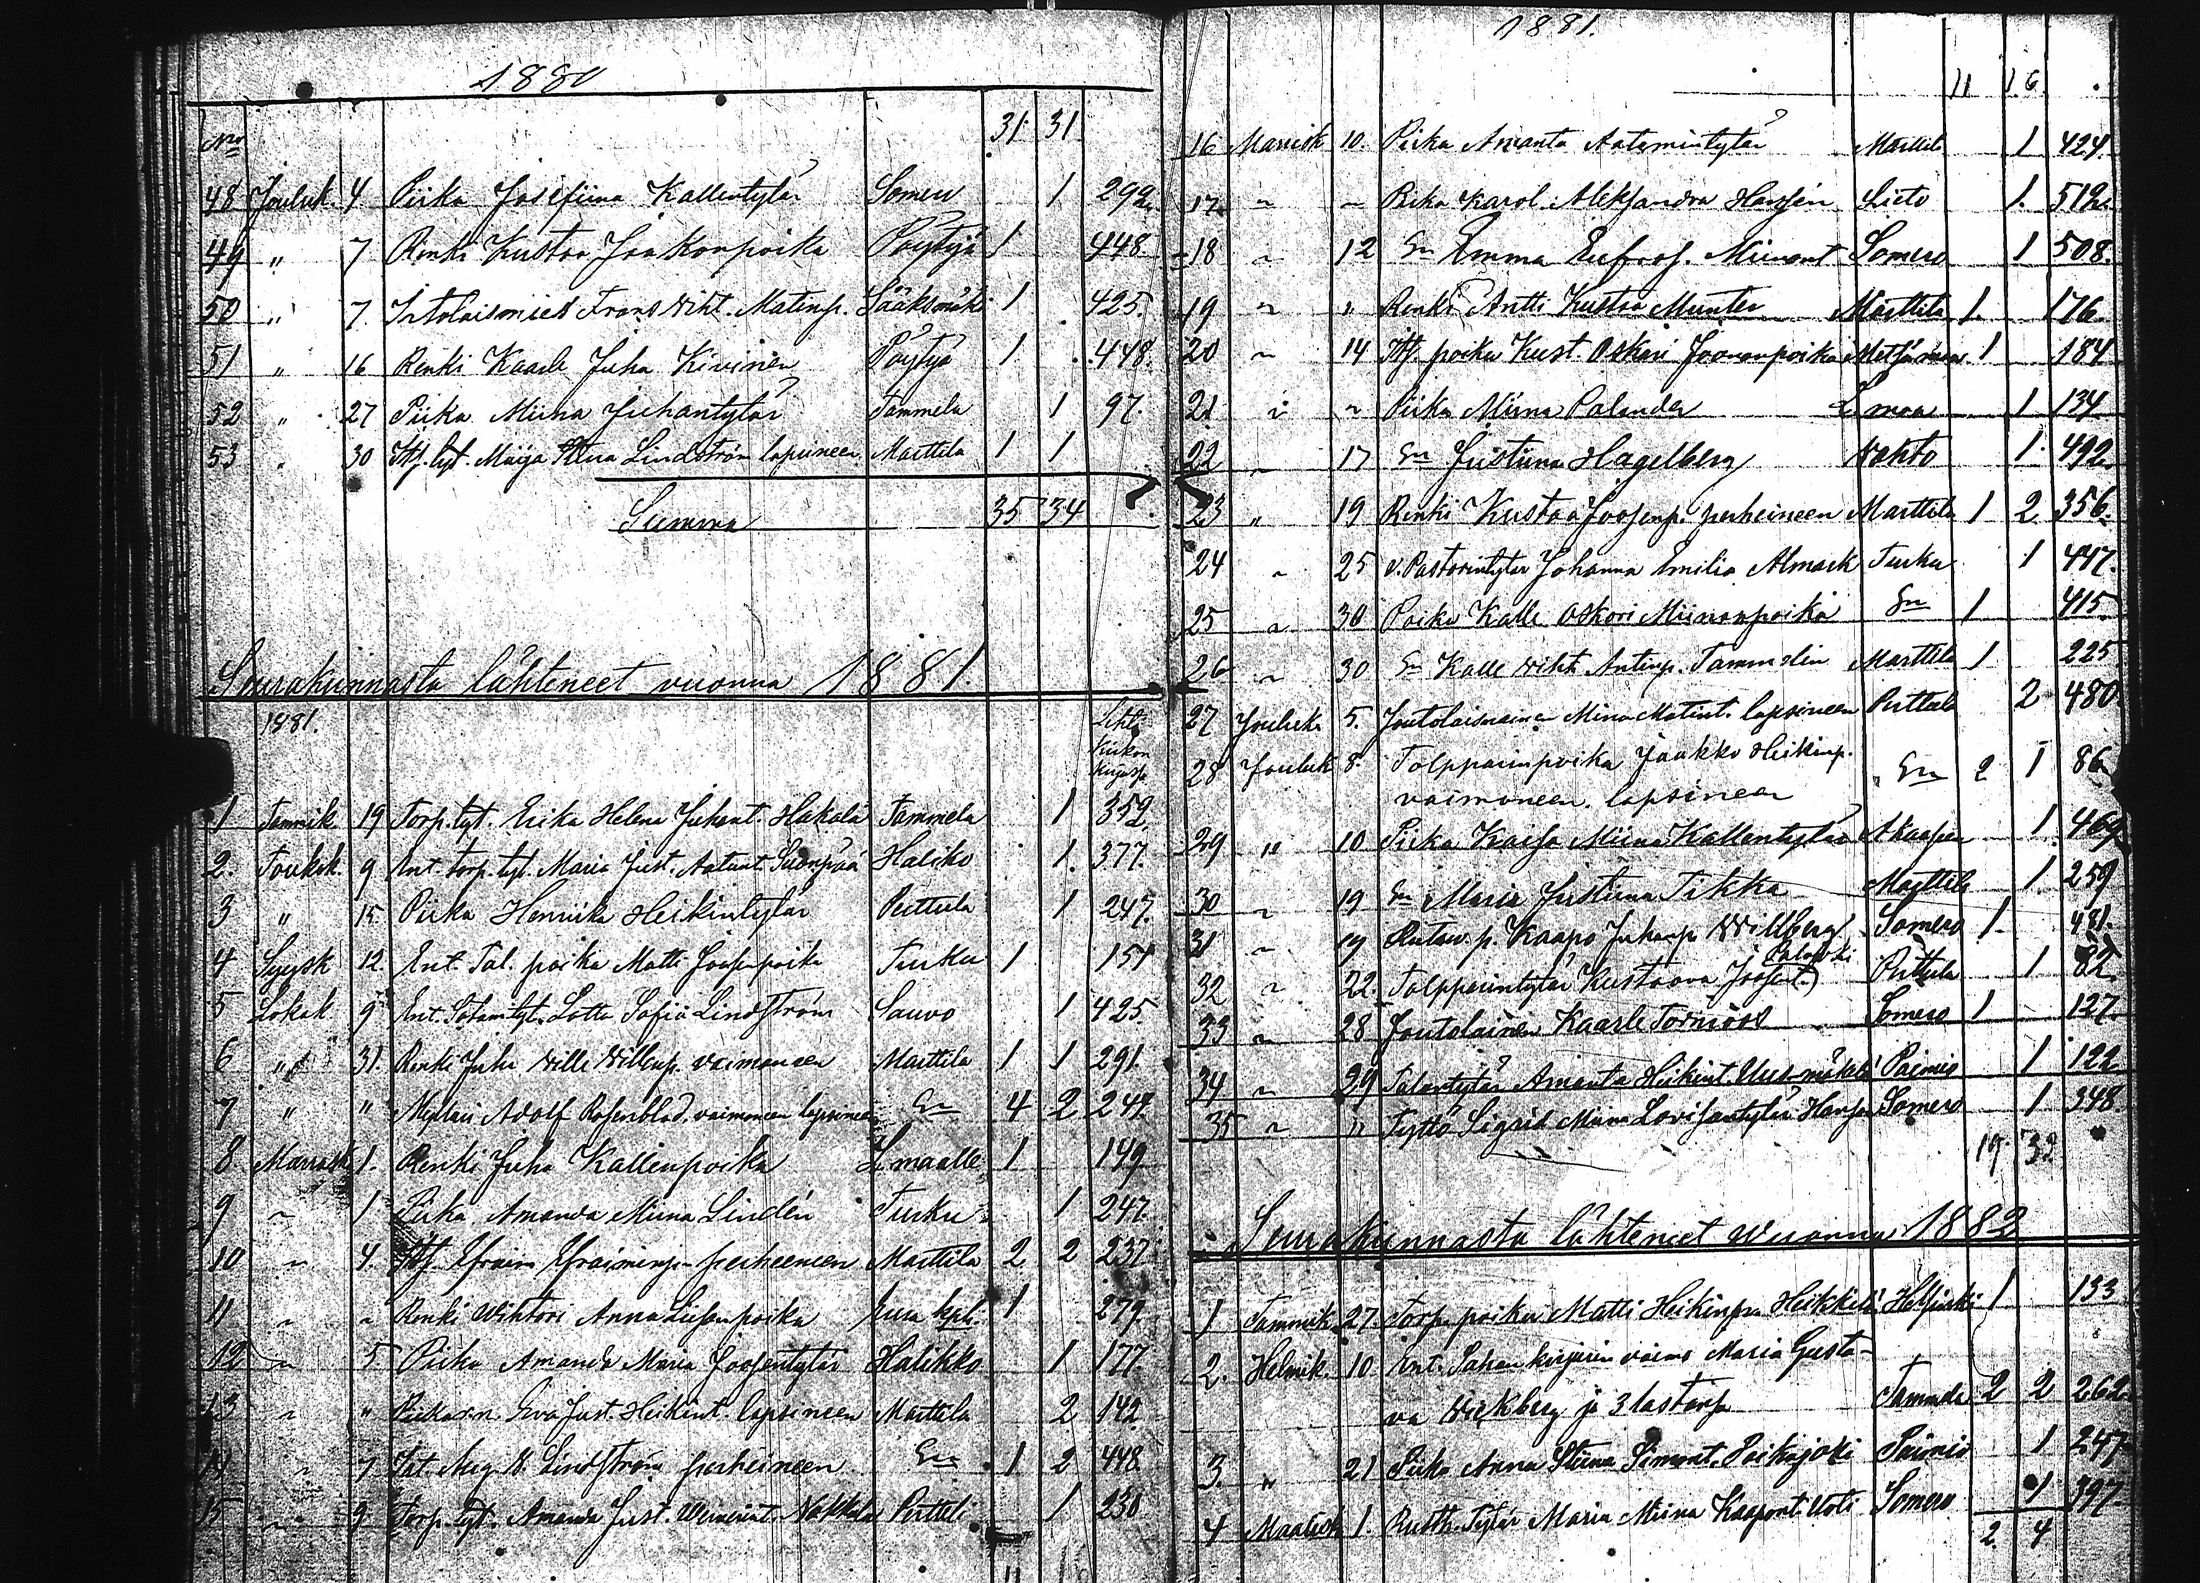 1880
No 31 31
48 Jouluk. 4 Piika Josefiina Kallentytär Somero 1 299.
49 " 7 Renki Kustaa Jaakonpoika Pöytyä 1 448.
50 " 7. Irtolaismies Frans Wiht. Matinp. Sääksmäki 1 425.
51 " 16 Renki Kaarle Juha Kivinen Pöytyä 1 448.
52 " 27 Piika Miina Juhantytär Tammela 1 97.
53 " 30 Itj. tyt. Maija Stina Lindström lapsineen Marttila 1 1
Summa 35 34
Seurakunnasta lähteneet vuonna 1881.
1881. Lehti Kirkon kirjassa
1 Tammik. 19 Torp. tyt. Erika Helena Juhant. Hakala Tammela 1 352.
2. Toukok. 9 Ent. torp. tyt. Maria Just. Aatamt. Suonpää Haliko 1. 377.
3 " 15. Piika Henriika Heikintytär Perttula 1 247.
4 Syysk 12. Ent. Tal. poika Matti Joosepinpoika Turku 1 151
5 Lokak 9 Ent. Sotam. tyt. Lotta Sofia Lindström Sauvo 1 425.
6 " 31. Renki Juha Wille Willenp. vaimoneen Marttila 1 1 291.
7 " " Mylläri Adolf Rosenblad. vaimoneen lapsineen Sn 4 2 247.
8 Marrask. 1. Renki Juha Kallenpoika L. maalle 1 149
9 " 1 Piika Amanda Miina Lindén Turku 1 247.
10 " 4. Itj. Efraim Efraiminp. perheeneen Marttila 2 2 237.
11 " " Renki Wihtori Anna Liisanpoika Eura kpli. 1 279.
12 " 5 Piika Amanda Maria Joosentytär Halikko 1 177.
13 " " Eva Just. Heikint. lapsineen Marttila 2 142
14 " 7 Itt. Aug. W. Lindström perheineen Sn 1 2 448.
15 " 9 Torp. tyt. Amanda Just. Nakkala Pertteli 1 230
1881.
11 16
16 Marrask 10. Piika Amanta Aatamintytär Marttila 1 424.
17. " " Piika Karol. Aleksandra Hansén Lieto 1. 512.
18 " 12 Sn Emma Eufros. Miinant Somero 1 508.
19 " " Renki Antti Kustaa Munter Marttila 1. 176.
20 " 14 Itj. poika Kust. Oskari Joonanpoika Metsämaa 1 184
21 " " Piika Miina Palander L. maa 1 134
22 " 17 Sn Justiina Hagelberg Wahto 1. 492.
23 " 19 Renki Kustaa Joosenp. perheineen Marttila 1 2 356.
24 " 25 v. Pastorintytär Johanna Emilia Almark Turku 1 447.
25 " 30 Poika Kalle Oskari Miinanpoika Sn 1 415.
26 " 30 Sn Kalle Wiht. Antinp. Tammelin Marttila 1 225
27 Jouluk. 5. Joutolaisnainen Miina Matint. lapsineen Perttula 2 480.
28 Jouluk 8. Tolpparinpoika Jaakko Heikinp. vaimoneen lapsineen Sn 2 1 86
29 " 10 Piika Kaisa Miina Kallentytär Akaapen 1. 469
30 " 19 Sn Maria Justiina Tikka Marttila 1. 259
31 " 19 Ratsw. p. Kaapo Juhanp Willberg Somero 1. 481.
32 " 22. Tolpparintytär Kustaava Joosent. Perttula 1 82.
33 " 28 Joutolainen Kaarle Törnroos Somero 1 127.
34 " 29 Talontytär Amanta Heikint. Uusmäkelä Paimio 1 122
35 " " Tyttö Sigrid Miina Lovisantytär Hansen Somero 1 348.
19 32
Seurakunnasta lähteneet Wuonna 1882
1 Tammik. 27. Torp. poika Matti Heikinp. Heikkilä Helsinki 1 133
2. Helmik. 10. Ent. Sahan kirjurin vaimo Maria Gusta-
va Wickberg ja 3 lastansa Tammela 2 2 262
3. " 21 Piika Anna Stiina Simont. Poikajoki Paimio 1 247
4 Maalisk 1. Rusth. Tytär Maria Miina Kaapont. Uoti Somero 1 397.
2 4